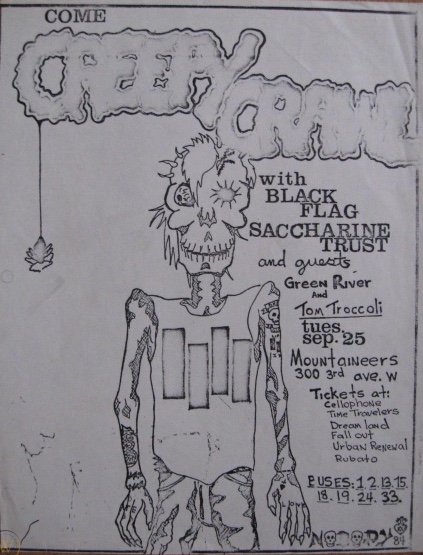 COME
CREEPY CRAWL
with
BLACK
FLAG
SACCHARINE
TRUST
and guests
Green River
And
Tom Troccoli
tues.
sep. 25
Mountaineers
300 3rd ave. W
Tickets at:
Cellophone
Time Travelers
Dream land
Fall out
Urban Renewal
Rubato
BUSES. 1. 2. 13. 15.
18. 19. 24. 33.
NOBODY 84